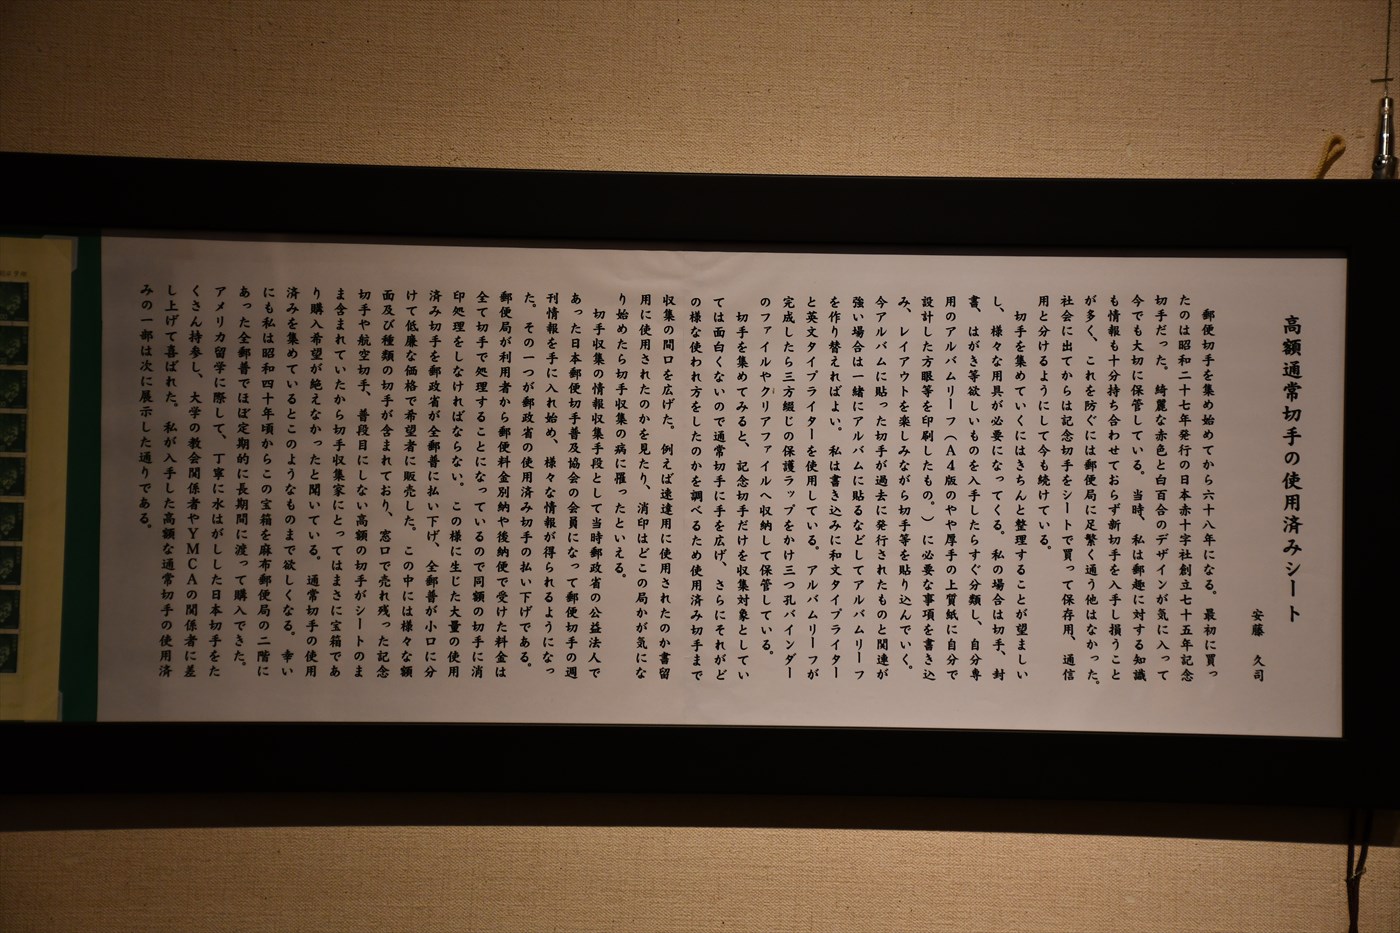 高額通常切手の使用済みシート
安藤　久司
郵便切手を集め始めてから六十八年になる。最初に買っ
たのは昭和二十七年発行の日本赤十字社創立七十五年記念
切手だった。綺麗な赤色と白百合のデザインが気に入って
今でも大切に保管している。当時、私は郵趣に対する知識
も情報も十分持ち合わせておらず新切手を入手し損うこと
が多く、これを防ぐには郵便局に足繁く通う他はなかった。
社会に出てからは記念切手をシートで買って保存用、通信
用と分けるようにして今も続けている。
切手を集めていくにはきちんと整理することが望ましい
し、様々な用具が必要になってくる。私の場合は切手、封
書、はがき等欲しいものを入手したらすぐ分類し、自分専
用のアルバムリーフ（A4版のやや厚手の上質紙に自分で
設計した方眼等を印刷したもの。）に必要な事項を書き込
み、レイアウトを楽しみながら切手等を貼り込んでいく。
今アルバムに貼った切手が過去に発行されたものと関連が
強い場合は一緒にアルバムに貼るなどしてアルバムリーフ
を作り替えればよい。私は書き込みに和文タイプライター
と英文タイプライターを使用している。アルバムリーフが
完成したら三方綴じの保護ラップをかけ三つ孔バインダー
のファイルやクリアファイルへ収納して保管している。
切手を集めてみると、記念切手だけを収集対象としてい
ては面白くないので通常切手に手を広げ、さらにそれがど
の様な使われ方をしたのかを調べるため使用済み切手まで
収集の間口を広げた。例えば速達用に使用されたのか書留
用に使用されたのかを見たり、消印はどこの局かが気にな
り始めたら切手収集の病に罹ったといえる。
切手収集の情報収集手段として当時郵政省の公益法人で
あった日本郵便切手普及協会の会員になって郵便切手の週
刊情報を手に入れ始め、様々な情報が得られるようになっ
た。その一つが郵政省の使用済み切手の払い下げである。
郵便局が利用者から郵便料金別納や後納便で受けた料金は
全て切手で処理することになっているので同額の切手に消
印処理をしなければならない。この様に生じた大量の使用
済み切手を郵政省が全郵普に払い下げ、全郵普が小口に分
けて低廉な価格で希望者に販売した。この中には様々な額
面及び種類の切手が含まれており、窓口で売れ残った記念
切手や航空切手、普段目にしない高額の切手がシートのま
ま含まれていたから切手収集家にとってはまさに宝箱であ
り購入希望が絶えなかったと聞いている。通常切手の使用
済みを集めているとこのようなものまで欲しくなる。幸い
にも私は昭和四十年頃からこの宝箱を麻布郵便局の二階に
あった全郵普でほぼ定期的に長期間に渡って購入できた。
アメリカ留学に際して、丁寧に水はがしした日本切手をた
くさん持参し、大学の教会関係者やYMCAの関係者に差
し上げて喜ばれた。私が入手した高額な通常切手の使用済
みの一部は次に展示した通りである。